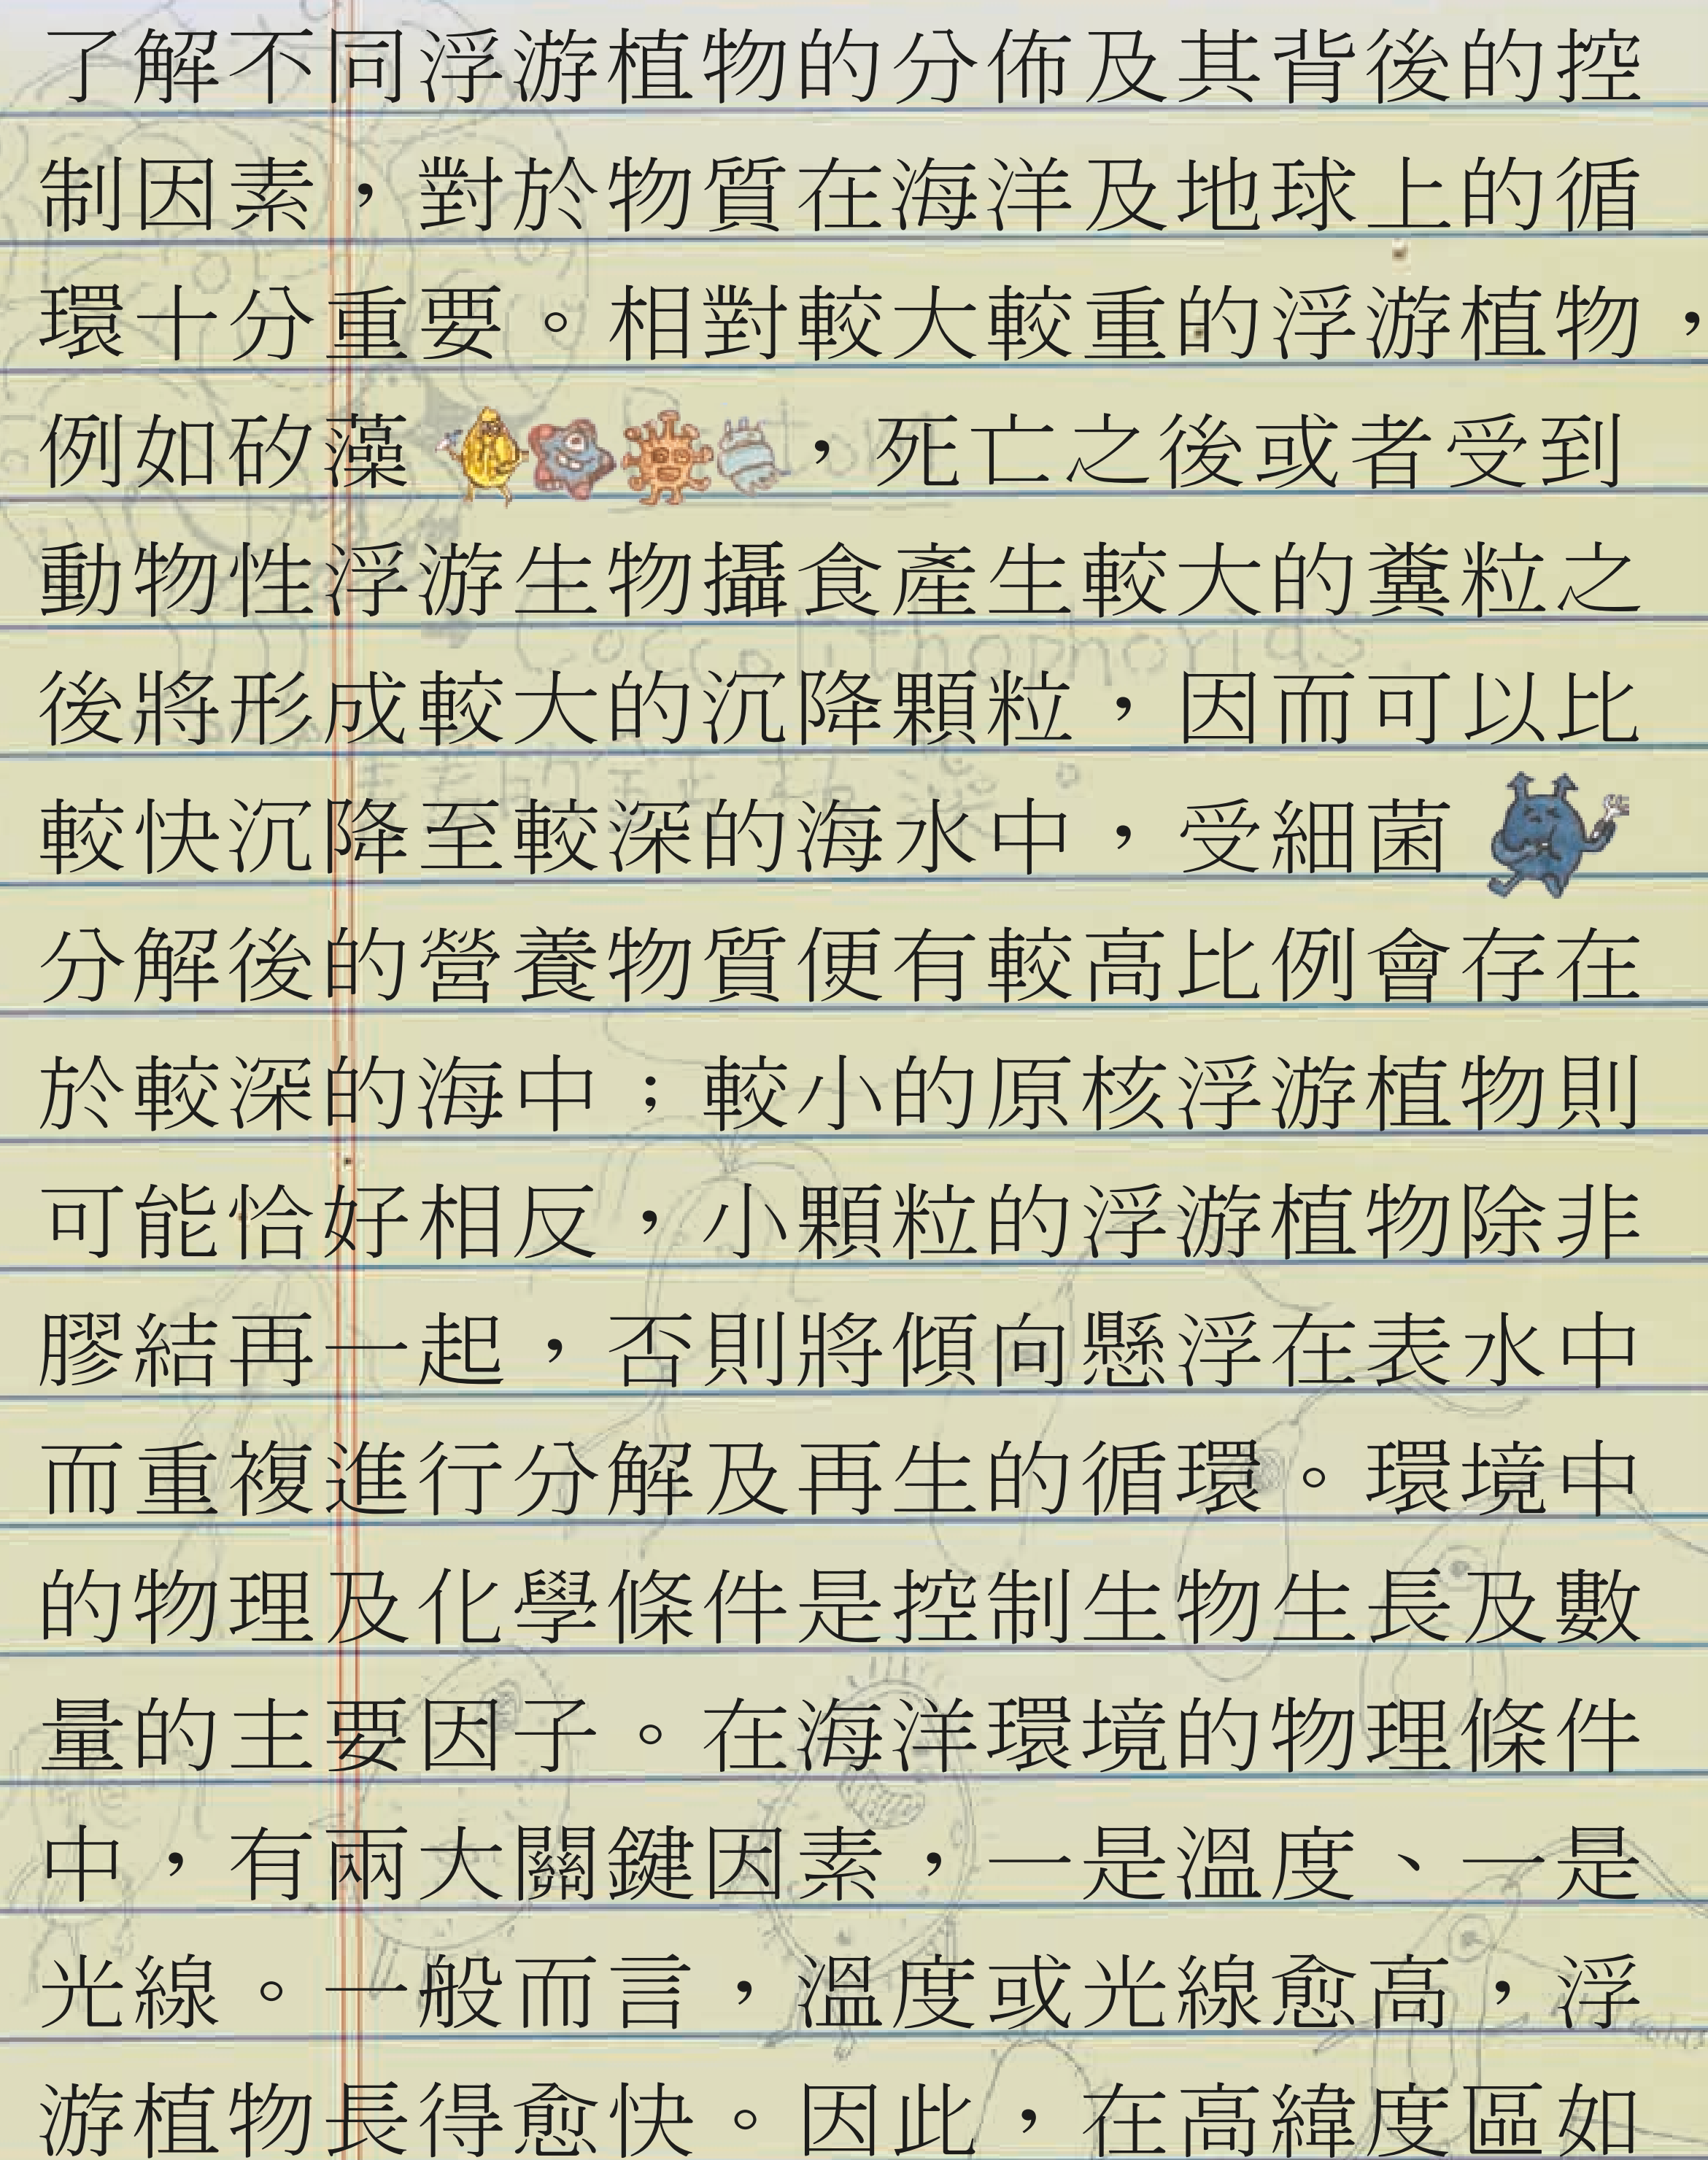 了解不同浮游植物的分佈及其背後的控
制因素，對於物質在海洋及地球上的循
環十分重要。相對較大較重的浮游植物，
例如矽藻，死亡之後或者受到
動物性浮游生物攝食產生較大的糞粒之
Coccolithophorids
後將形成較大的沉降顆粒，因而可以比
較快沉降至較深的海水中，受細菌
分解後的營養物質便有較高比例會存在
於較深的海中；較小的原核浮游植物則
可能恰好相反，小顆粒的浮游植物除非
膠結再一起，否則將傾向懸浮在表水中
而重複進行分解及再生的循環。環境中
的物理及化學條件是控制生物生長及數
量的主要因子。在海洋環境的物理條件
中，有兩大關鍵因素，一是溫度、一是
光線。一般而言，溫度或光線愈高，浮
游植物長得愈快。因此，在高緯度區如